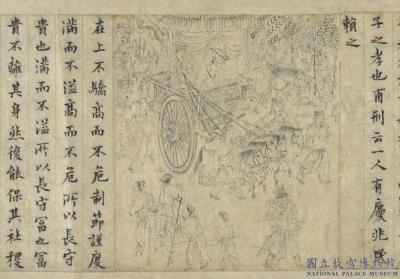 子之孝也甫刑云一人有慶兆民
賴之
在上不驕高而不危制節謹度
滿而不溢高而不危所以長守
貴也滿而不溢所以長守富也富
貴不離其身然後能保其社稷
國立故宮博物院
NATIONAL PALACE MUSEUM